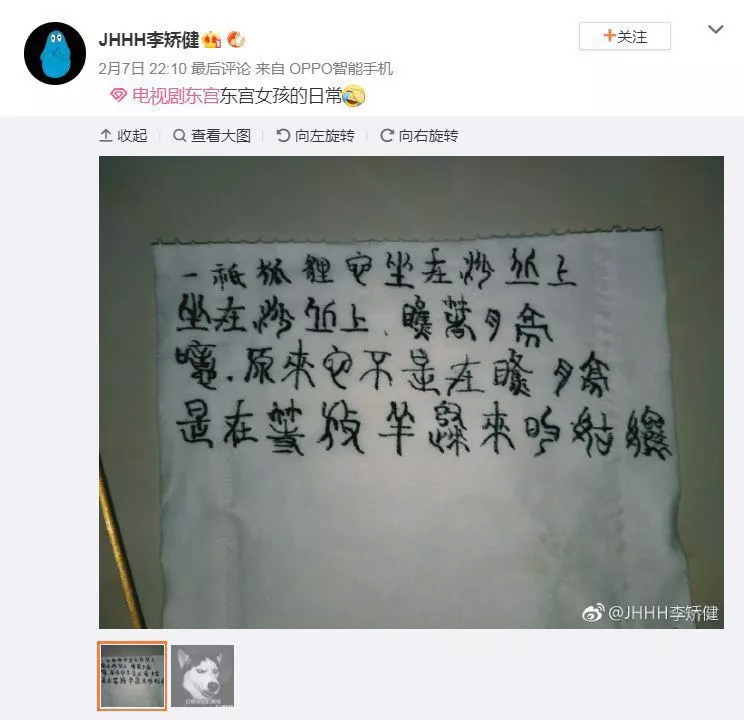 JHHH李矫健
+关注
2月7日 22:10 最后评论 来自 OPPO智能手机
电视剧东宫东宫女孩的日常
收起 查看大图 向左旋转 向右旋转
一祇狐狸它坐在沙丘上
坐在沙丘上、瞧著月亮
噫.原來它不是在瞧月亮
是在等放羊歸來的姑娘
@JHHH李矫健